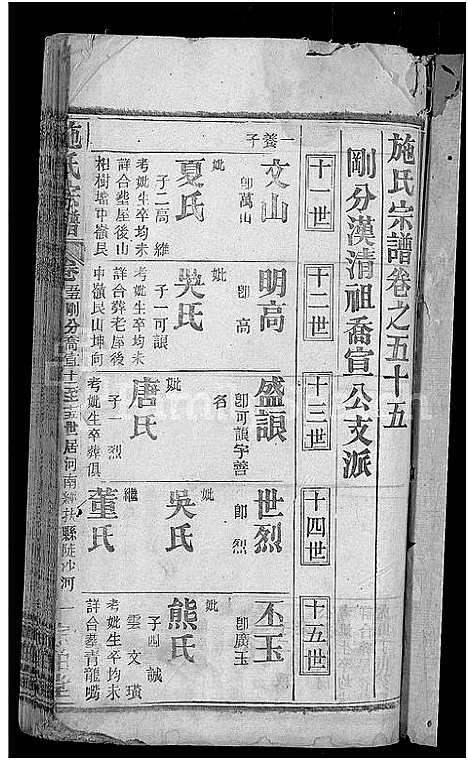 施氏宗譜卷之五十五
剛分漢清祖喬官公支派
十一世
十二世
十三世
十四世
十五世
一養子
文山
卽萬山
妣
夏氏
子二高 維
考妣生卒均未
詳合塟屋後山
柏樹壋中嶺艮
明高
卽高
妣
吳氏
子一可誏
考妣生卒均未
詳合葬老屋後
中嶺艮山坤向
盛誏
卽可誏字善
名
妣
唐氏
子一烈
考妣生卒葬俱
世烈
卽烈
妣
吳氏
繼
董氏
丕玉
卽廣玉
妣
熊氏
子四誠
雲文璜
考妣生卒均未
詳合墓青龍嘴
施氏宗譜
卷
世居河南經扶縣陡沙河
一